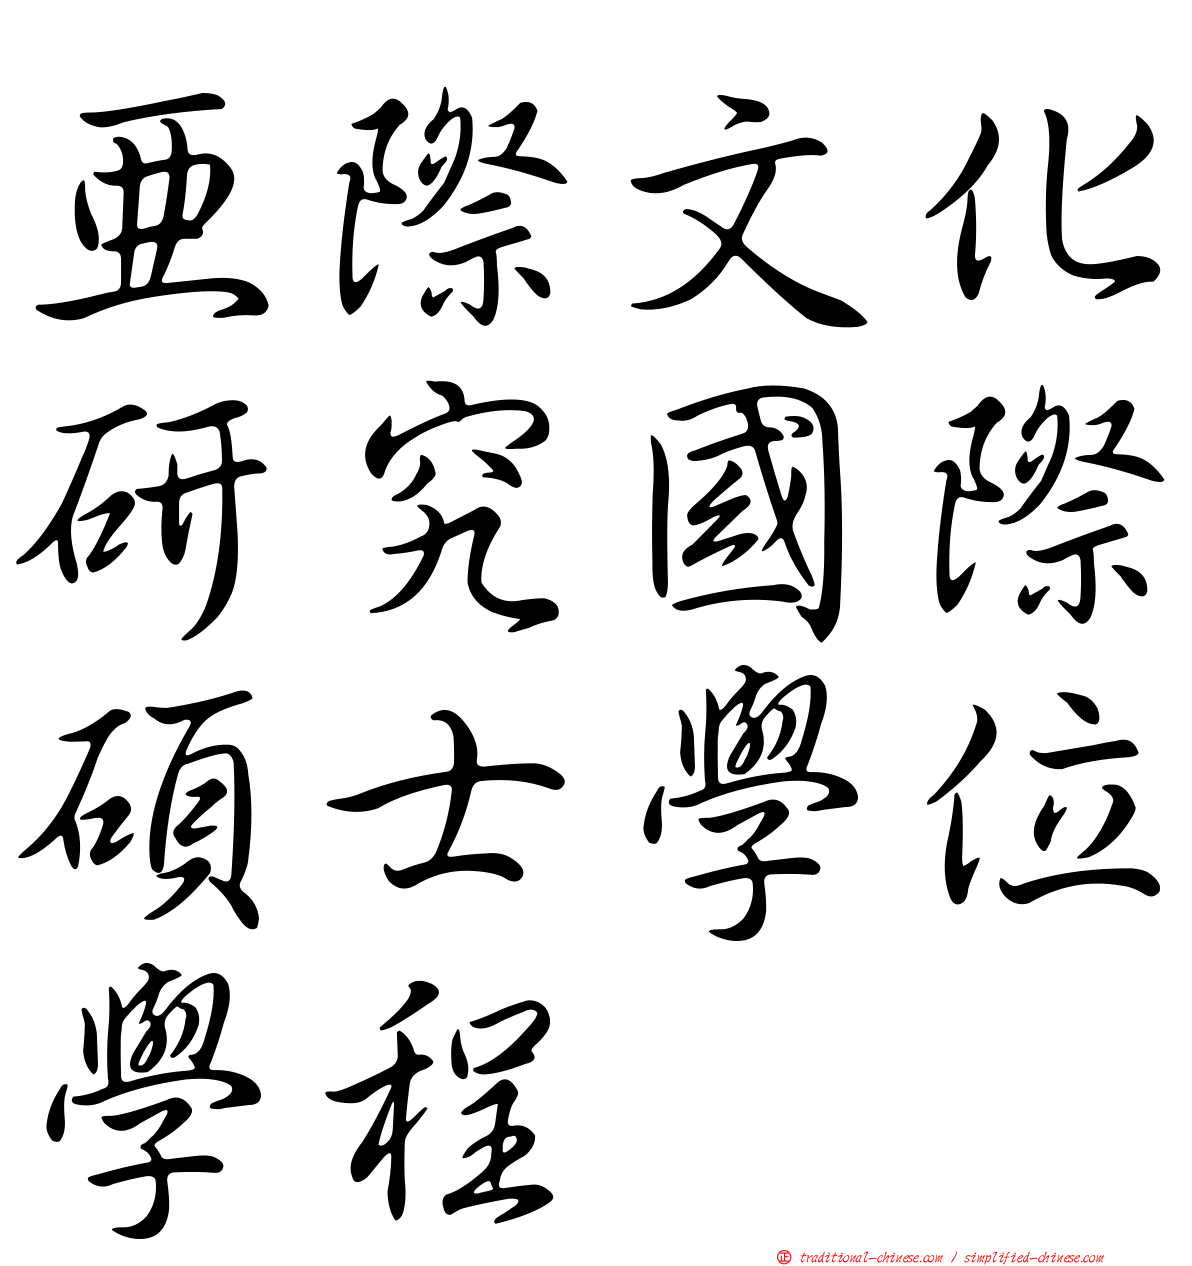 亞際文化
研究國際
碩士學位
學程
正 traditional-chinese.com / simplified-chinese.com